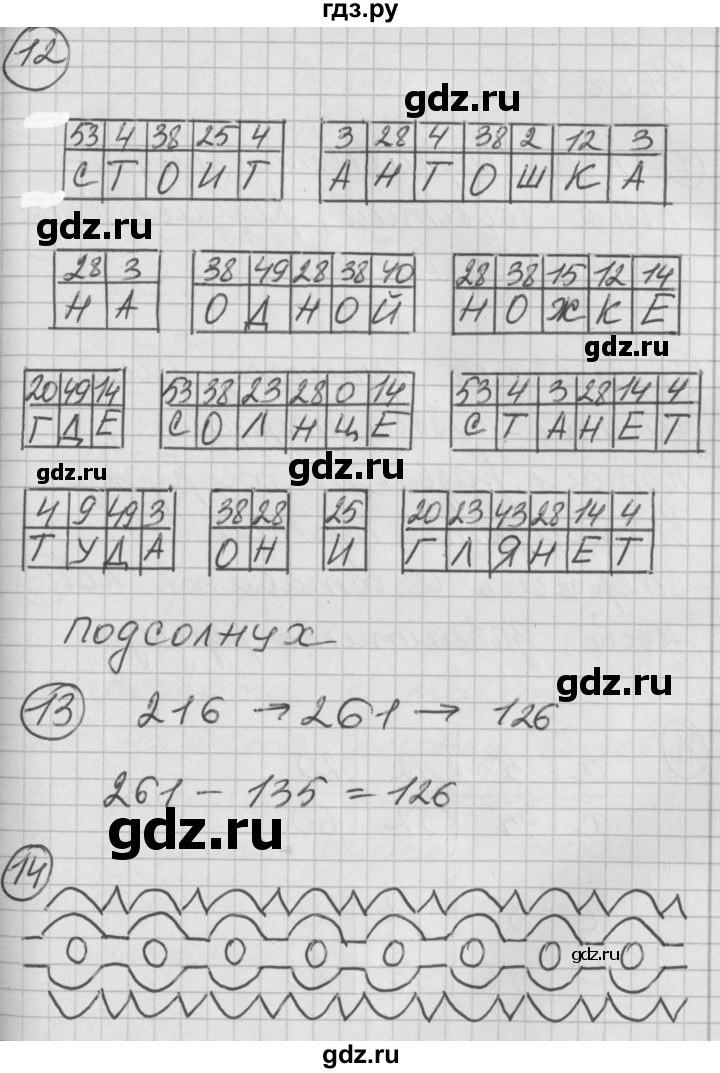 гдз.ру
12
gdz.ru
53 4 38 25 4 3 28 4 38 2 12 3
С Т О И Т А Н Т О Ш К А
gdz.ru
28 3 38 49 28 38 40 28 38 15 12 14
Н А О Д Н О Й Н О Ж К Е
gdz.ru
20 49 14 53 38 23 28 0 14 53 4 3 28 14 4
Г Д Е С О Л Н Ц Е С Т А Н Е Т
gdz.ru gdz.ru
4 9 49 3 38 28 25 20 23 43 28 14 4
Т У Д А О Н И Г Л Я Н Е Т
подсолнух
gdz.ru
13 216 → 261 → 126
261 - 135 = 126
gdz.ru
14
gdz.ru
gdz.ru